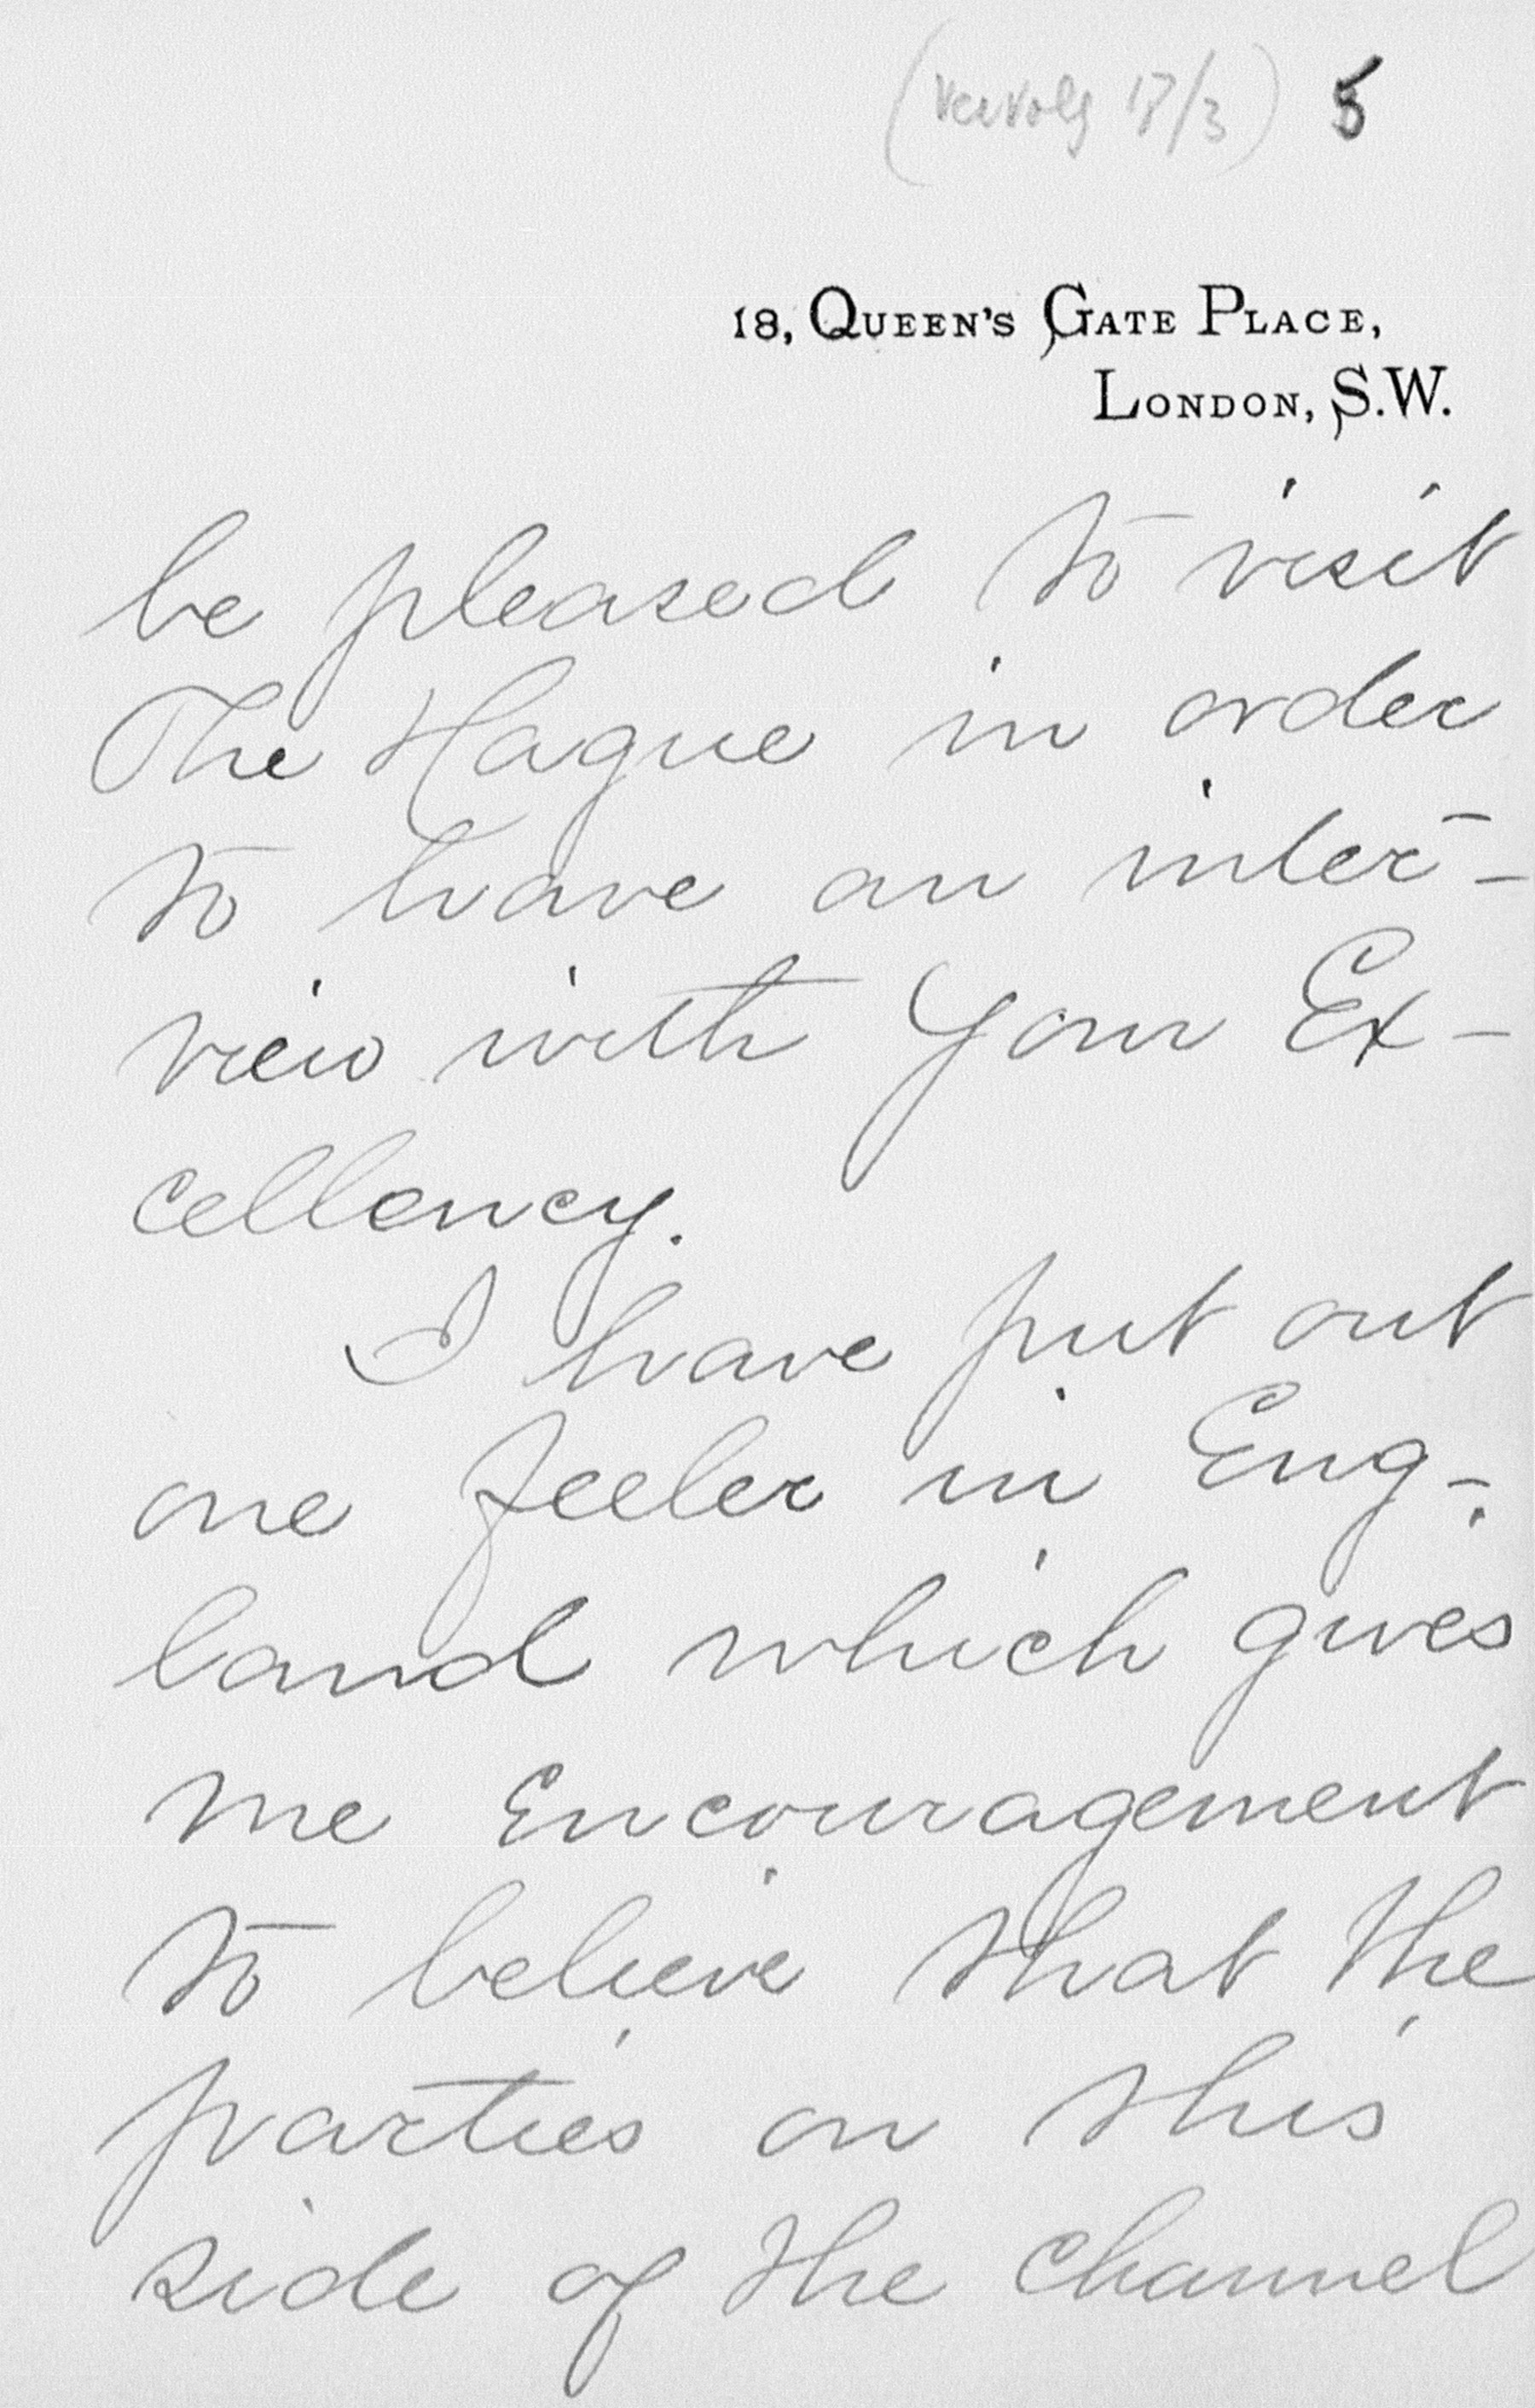 (vervolg 17/3) 5
18, QUEEN'S GATE PLACE,
LONDON, S.W.
be pleased to visit
The Hague in order
to have an inter-
view with your Ex-
cellency.
I have put out
one feeler in Eng-
land which gives
me encouragement
to believe that the
parties on this
side of the channel